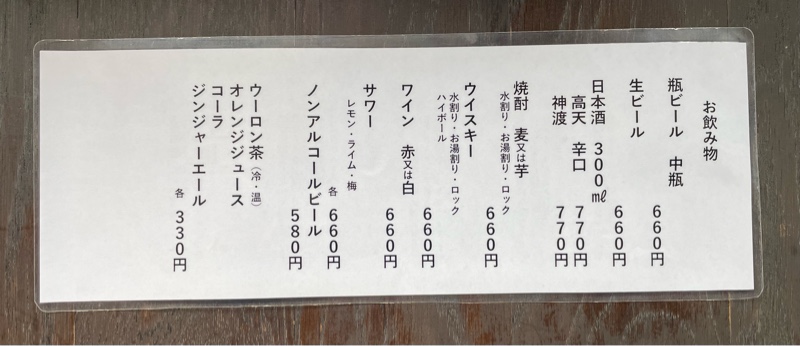 お飲み物
瓶ビール 中瓶 660円
生ビール 660円
日本酒 300㎖
高天 辛口 770円
神渡 770円
焼酎 麦又は芋 660円
水割り・お湯割り・ロック
ウイスキー 660円
水割り・お湯割り・ロック
ハイボール
ワイン 赤又は白 660円
サワー 各660円
レモン・ライム・梅
ノンアルコールビール 580円
ウーロン茶(冷・温)
オレンジジュース
コーラ
ジンジャーエール 各330円